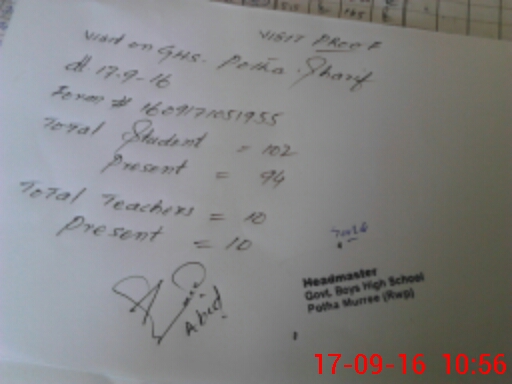 VISIT PROOF
Visit on GHS. Potha. Sharif
dt 17-9-16
Form # 1609171051955
Total Student = 102
Present = 94
Total Teachers = 10
Present = 10
Abid
Headmaster
Govt. Boys High School
Potha Murree (Rwp)
17-09-16 10:56